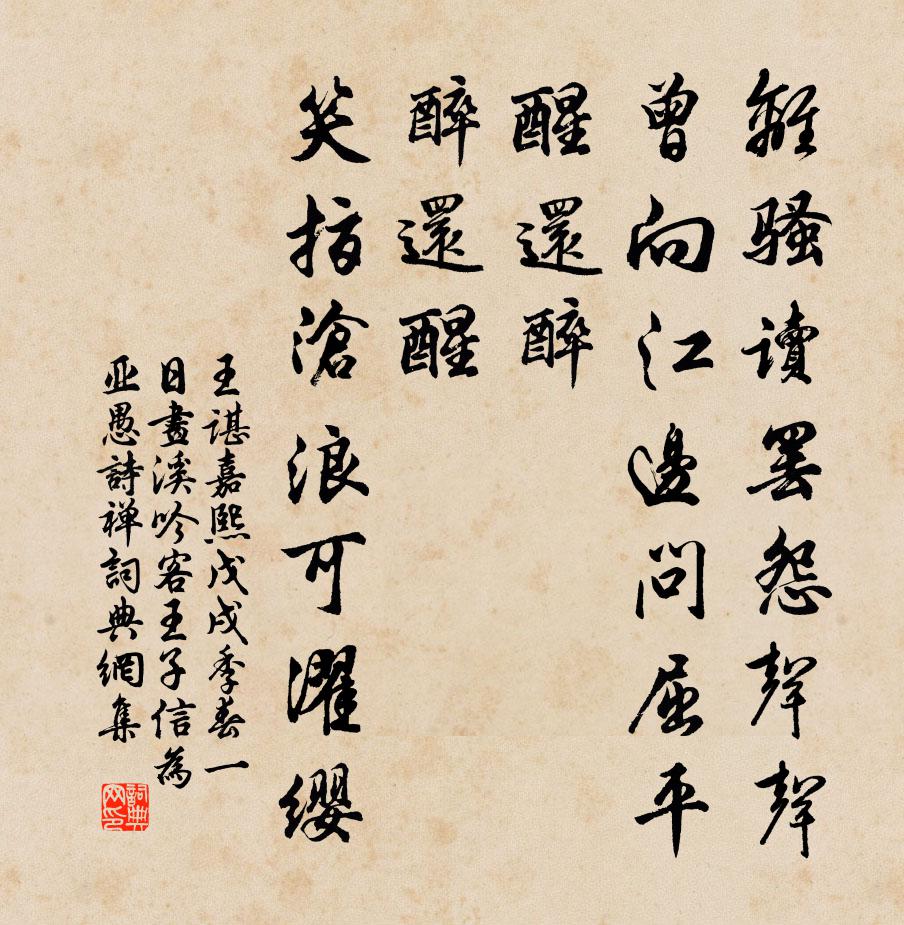 離騷讀罷怨聲聲
曾向江邊問屈平
醒還醉
醉還醒
笑指滄浪可濯纓
王諶嘉熙戊戌季春一
日畫溪吟客王子信為
亚愚詩禅詞典網集
詞典网印